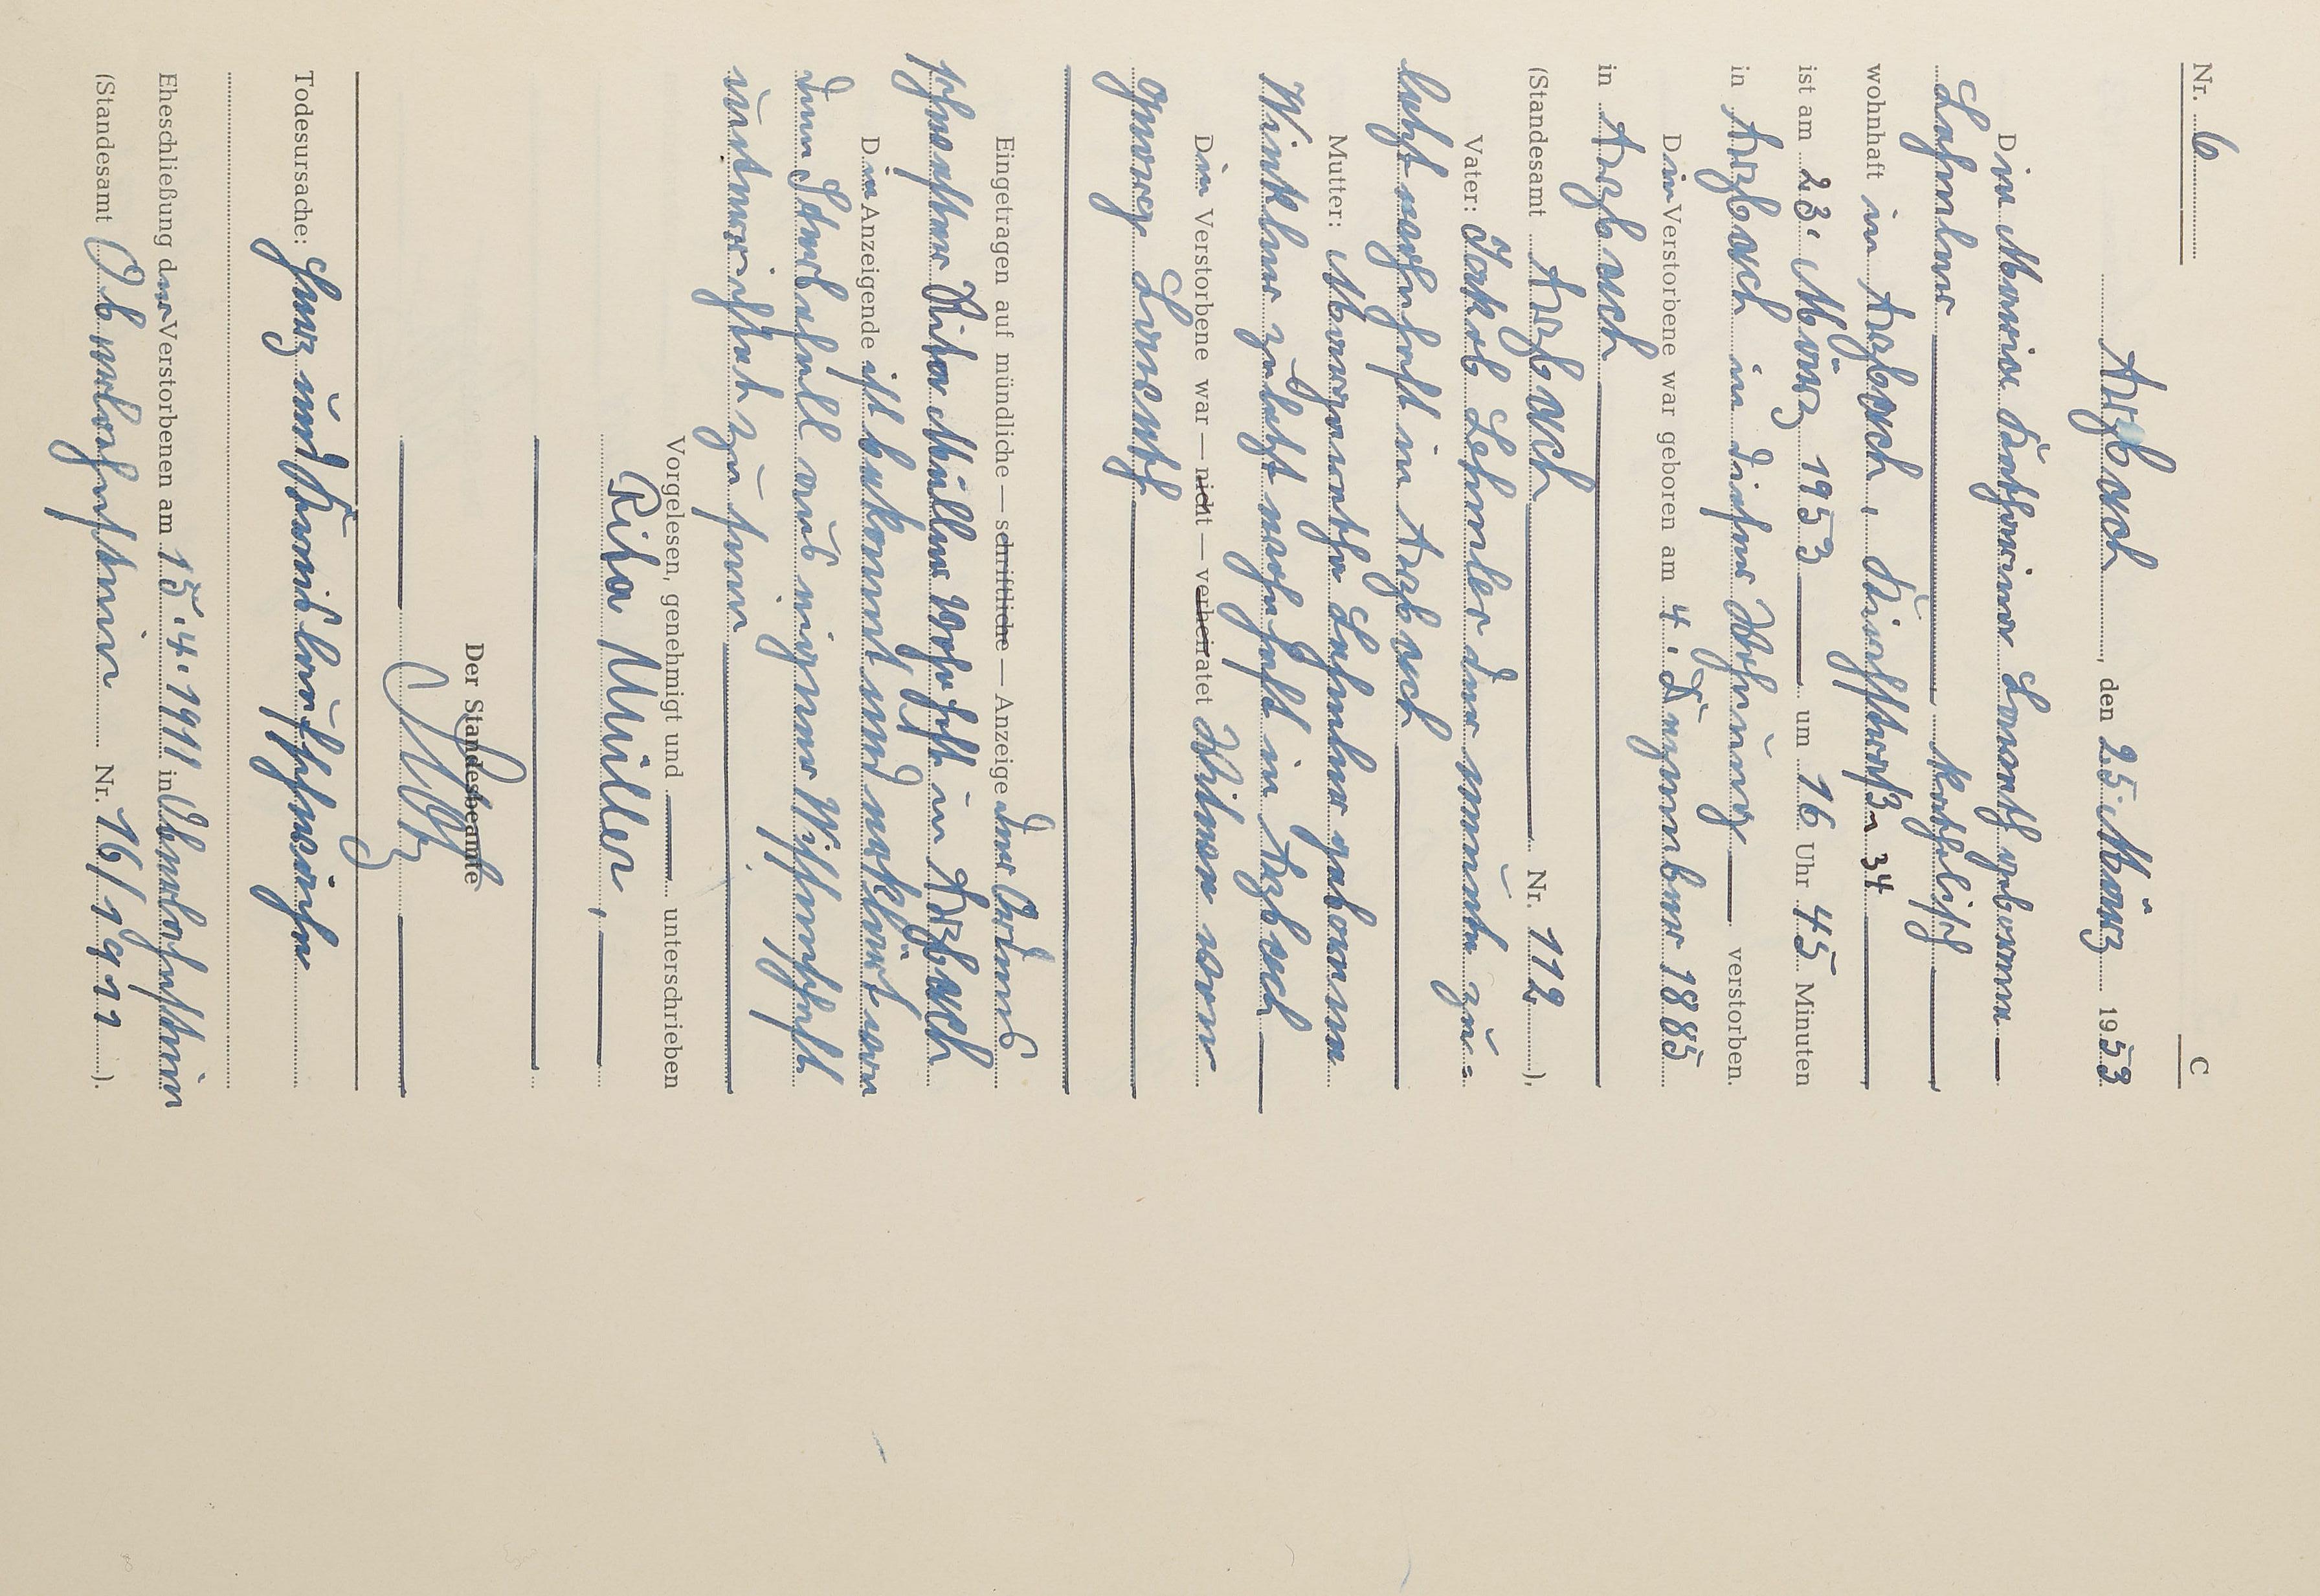 Nr. 6
C
Arzbach, den 25. März 1953
Die Maria Katharina Lorenth geborene
Lehmler katholisch
wohnhaft in Arzbach, Kirchstraße 34
ist am 23. März 1953 um 16 Uhr 45 Minuten
in Arzbach in dieser Wohnung verstorben.
Die Verstorbene war geboren am 4. Dezember 1885
in Arzbach
(Standesamt Arzbach Nr. 112).
Vater: Jakob Lehmler der nannte zu-
letzt wohnhaft in Arzbach
Mutter: Margarethe Lehmler geborene
Winkler zuletzt wohnhaft in Arzbach
Die Verstorbene war — nicht — verheiratet Witwe von
Georg Lorenth
Eingetragen auf mündliche — schriftliche — Anzeige der Ordens
schwester Rita Müller wohnhft in Arzbach
Die Anzeigende ist bekannt und erklärt von
dem Sterbefall aus eigener Wissenschaft
unterrichtet zu sein
Vorgelesen, genehmigt und unterschrieben
Rita Müller,
Der Standesbeamte
Todesursache: Herz und Kreislaufschwäche
Eheschließung der Verstorbenen am 15.4.1911 in Oberlahnstein
(Standesamt Oberlahnstein Nr. 16/1911).